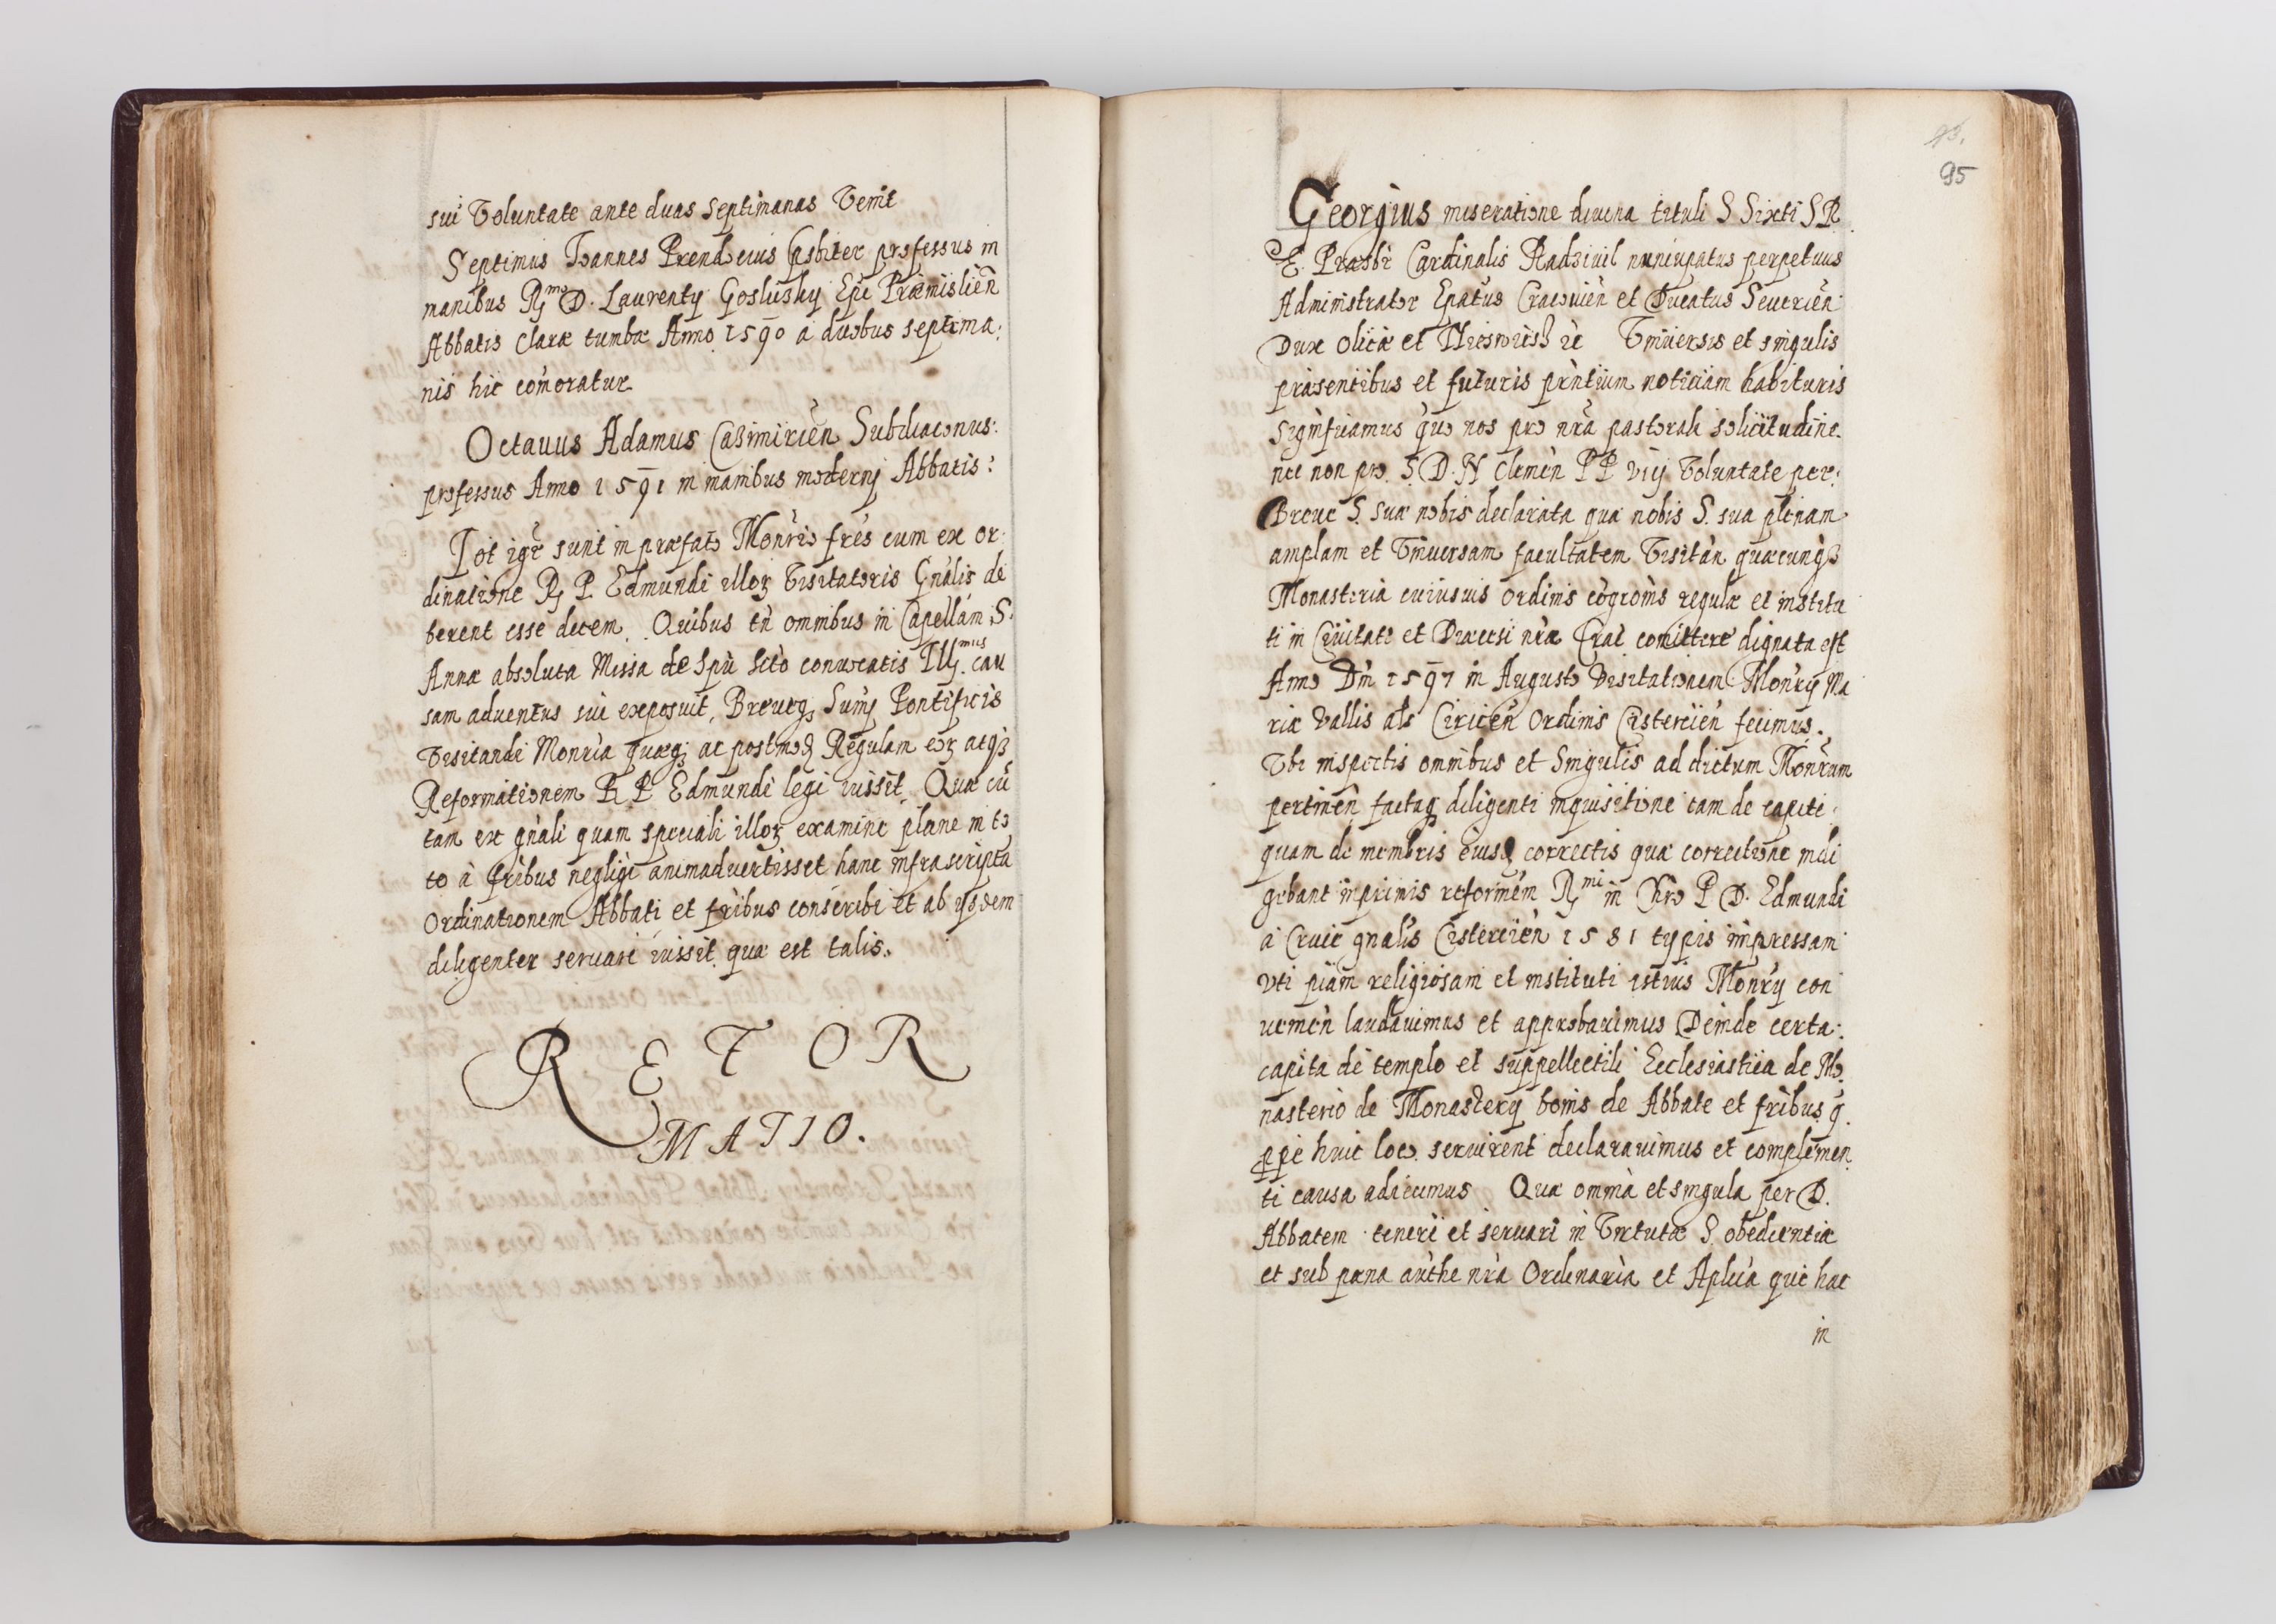 sui Voluntate ante duas septimanas Venit
Septimus Ioannes Prendecius Psbiter professus in
manibus R.mo D. Laurentÿ Goslusky Epi Præmislien̄
Abbatis Claræ tumbæ Anno 1590 a duobus septima:
nis hic com̄oratur
Octauus Adamus Casimirien̄ Subdiaconus:
professus Anno 1591 in manibus modernj Abbatis:
Tot igr̄ sunt in præfato Monr̄io fr̄es cum ex or:
dinatione R. P. Edmundi illoꝝ Visitatoris Gn̄alis de
berent esse decem. Quibus tn̄ omnibus in Capellam S.
Annæ absoluta Missa de Spū Scto conuocatis Ill.mus cau
sam aduentus sui exposuit, Breueqꝫ Sum̄j Pontificis
Visitandi Monr̄ia quæqꝫ ac postmodꝫ Regulam eoꝝ atqꝫ
Reformationem R P Edmundi legi iussit. Quæ cū
tam ex gn̄ali quam speciali illoꝝ examine plane in to
to à fr̄ibus negligi animaduertisset hanc infrascripta
Ordinationem Abbati et fr̄ibus conscribi et ab ÿsdem
diligenter seruari iussit quæ est talis.
R E F O R
M A T I O.
95
Georgius miseratione diuina tituli S Sixti S R
E. Præsbr̄ Cardinalis Radziuil nuncupatus perpetuus
Administrator Epatus Cracouien̄ et Ducatus Seuerien̄
Dux Olicæ et Nieswiesz ꝛc Vniuersis et singulis
præsentibus et futuris pr̄ntium noticiam habituris
Significamus quo nos pro nr̄a pastorali solicitudine
nec non pro S. D. N Clemen̄ PP viij Voluntate per:
Breue S. Suæ nobis declarata qua nobis S. sua plenam
amplam et Vniuersam facultatem Visitan̄ quæcunqꝫ
Monasteria cuiusuis Ordinis cōgrōnis regulæ et institu
ti in Ciuitate et Diæcesi nr̄a Crac com̄ittere dignata est
Anno Dn̄i 1597 in Augusto Visitationem Monr̄ÿ Ma
riæ Vallis als Ciricen̄ Ordinis Cistercien̄ fecimus.
Vbi inspectis omnibus et Singulis ad dictum Monr̄ium
pertinen̄ factaqꝫ diligenti inquisitione tam de capite
quam de membris eiusdꝫ correctis quæ correctione indi
gebant inprimis reformen̄ R.mi in Chro P D. Edmundi
a Cruce gn̄alis Cistercien̄ 1581 typis impressam
vti piam religiosam et instituti istius Monr̄ÿ con
uenien̄ laudauimus et approbauimus Deinde certa:
capita de templo et suppellectili Ecclesiastica de Mo
nasterio de Monasterÿ bonis de Abbate et fr̄ibus q̄
ppe huic loco seruirent declarauimus et complemen
ti causa adiecimus Quæ omnia et singula per D.
Abbatem teneri et seruari in Virtute S. obedientiæ
et sub pæna authe nr̄a Ordinaria et Aplica qui hac
in